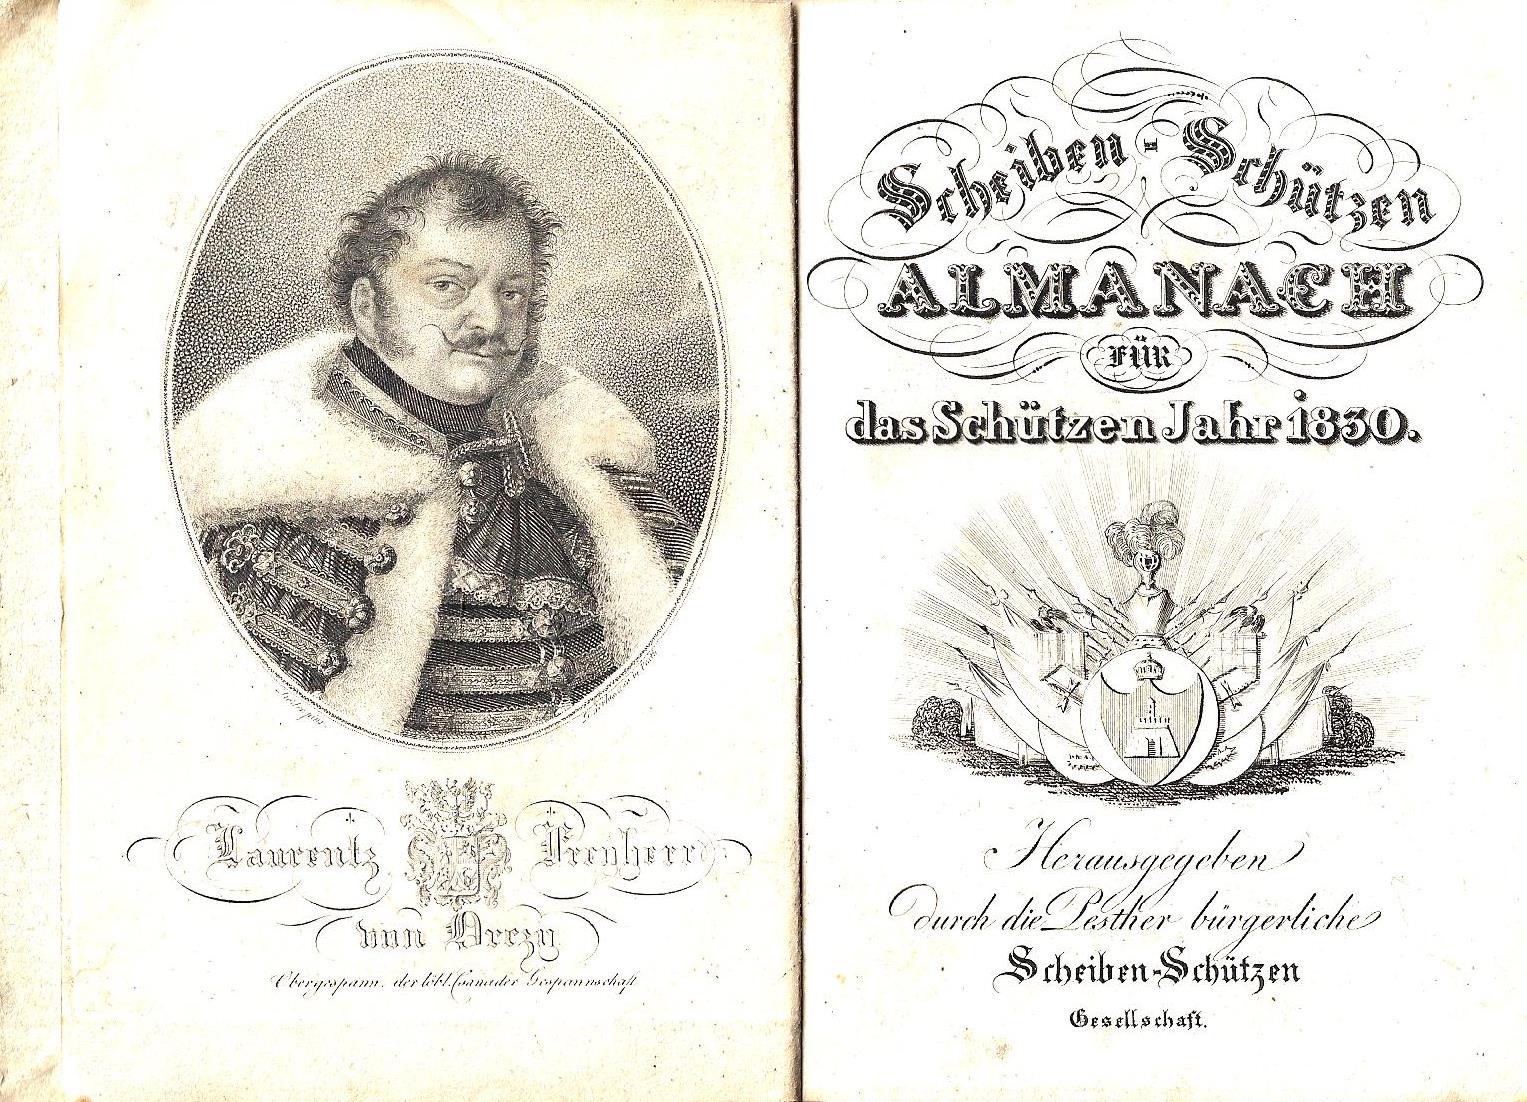 Laurentz Freyherr
von Orczy
Obergespann der löbl. Csanader Gespannschaft
Scheiben-Schützen
ALMANACH
FÜR
das Schützen Jahr 1830.
Herausgegeben
durch die Pesther bürgerliche
Scheiben-Schützen
Gesellschaft.